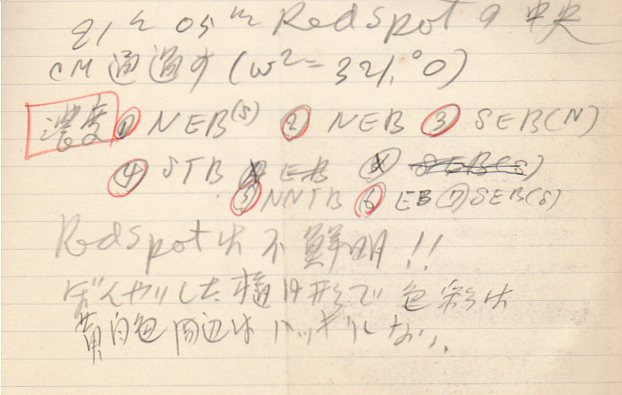 21h 05m Red Spotの中央
CM通過す (ω²=321.°0)
濃度 ① NEB(S) ② NEB ③ SEB(N)
④ STB ⑤ EB ⑥ SEB(S)
⑤ NNTB ⑥ EB ⑦ SEB(S)
Red Spotは不鮮明!!
ぼんやりした楕円形で色彩は
黄白色周辺はハッキリしない、